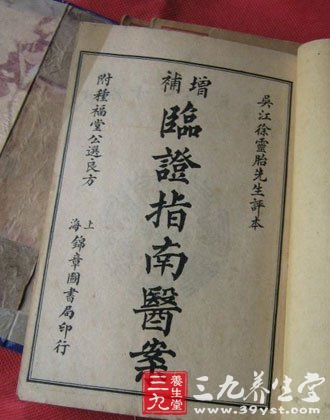 吳江徐靈胎先生評本
增補
臨證指南醫案
附種福堂公選良方
上海錦章圖書局印行
三九
養生堂
三九养生堂
www.39yst.com